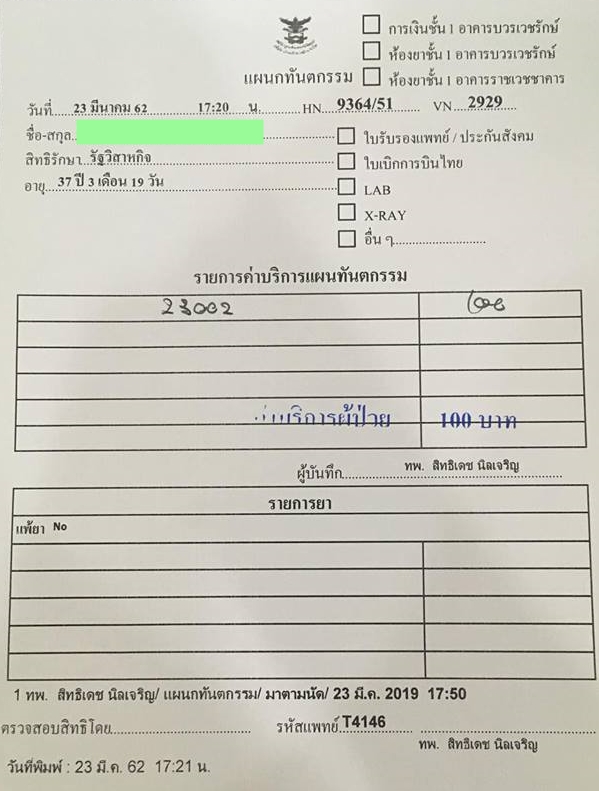 การเงินชั้น 1 อาคารบวรเวชรักษ์
ห้องยาชั้น 1 อาคารบวรเวชรักษ์
แผนกทันตกรรม ห้องยาชั้น 1 อาคารราชเวชชาคาร
วันที่ 23 มีนาคม 62 17:20 น. HN 9364/51 VN 2929
ชื่อ-สกุล
ใบรับรองแพทย์ / ประกันสังคม
สิทธิรักษา รัฐวิสาหกิจ
ใบเบิกการบินไทย
อายุ 37 ปี 3 เดือน 19 วัน
LAB
X-RAY
อื่น ๆ
รายการค่าบริการแผนทันตกรรม
23002
บริการผู้ป่วย 100 บาท
ผู้บันทึก ทพ. สิทธิเดช นิลเจริญ
รายการยา
แพ้ยา No
1 ทพ. สิทธิเดช นิลเจริญ/ แผนกทันตกรรม/ มาตามนัด/ 23 มี.ค. 2019 17:50
ตรวจสอบสิทธิโดย รหัสแพทย์ T4146
ทพ. สิทธิเดช นิลเจริญ
วันที่พิมพ์ : 23 มี.ค. 62 17:21 น.